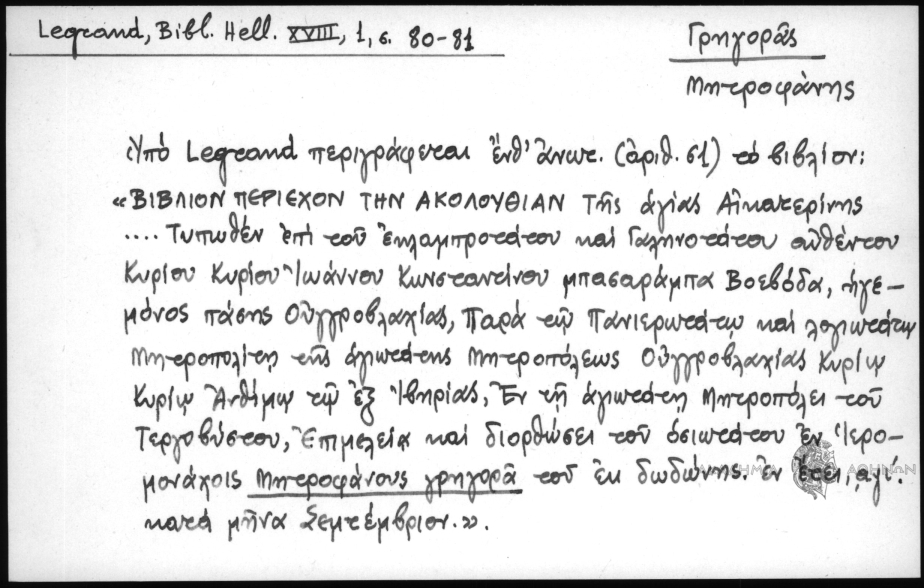 Legrand, Bibl. Hell. XVIII, 1, σ. 80-81
Γρηγορᾶς
Μητροφάνης
Ὑπό Legrand περιγράφεται ἔνθ' ἀνωτ. (ἀριθ. 51) τό βιβλίον:
«ΒΙΒΛΙΟΝ ΠΕΡΙΕΧΟΝ ΤΗΝ ΑΚΟΛΟΥΘΙΑΝ Τῆς ἁγίας Αἰκατερίνης
.... Τυπωθέν ἐπί τοῦ ἐκλαμπροτάτου καί Γαληνοτάτου αὐθέντου
Κυρίου Κυρίου Ἰωάννου Κωνσταντίνου μπασαράμπα Βοεβόδα, ἡγε-
μόνος πάσης Οὑγγροβλαχίας, Παρά τῷ Πανιερωτάτῳ καί λογιωτάτῳ
Μητροπολίτῃ τῆς ἁγιωτάτης Μητροπόλεως Οὑγγροβλαχίας Κυρίῳ
Κυρίῳ Ἀνθίμῳ τῷ ἐξ Ἰβηρίας, Ἐν τῇ ἁγιωτάτῃ Μητροπόλει τοῦ
Τεργοβύστου, Ἐπιμελείᾳ καί διορθώσει τοῦ ὁσιωτάτου ἐν Ἱερο-
μονάχοις Μητροφάνους γρηγορᾶ τοῦ ἐκ δωδώνης. ἐν ἔτει, αψί.
κατά μῆνα Σεμτέμβριον.».
ΑΘΗΝΩΝ